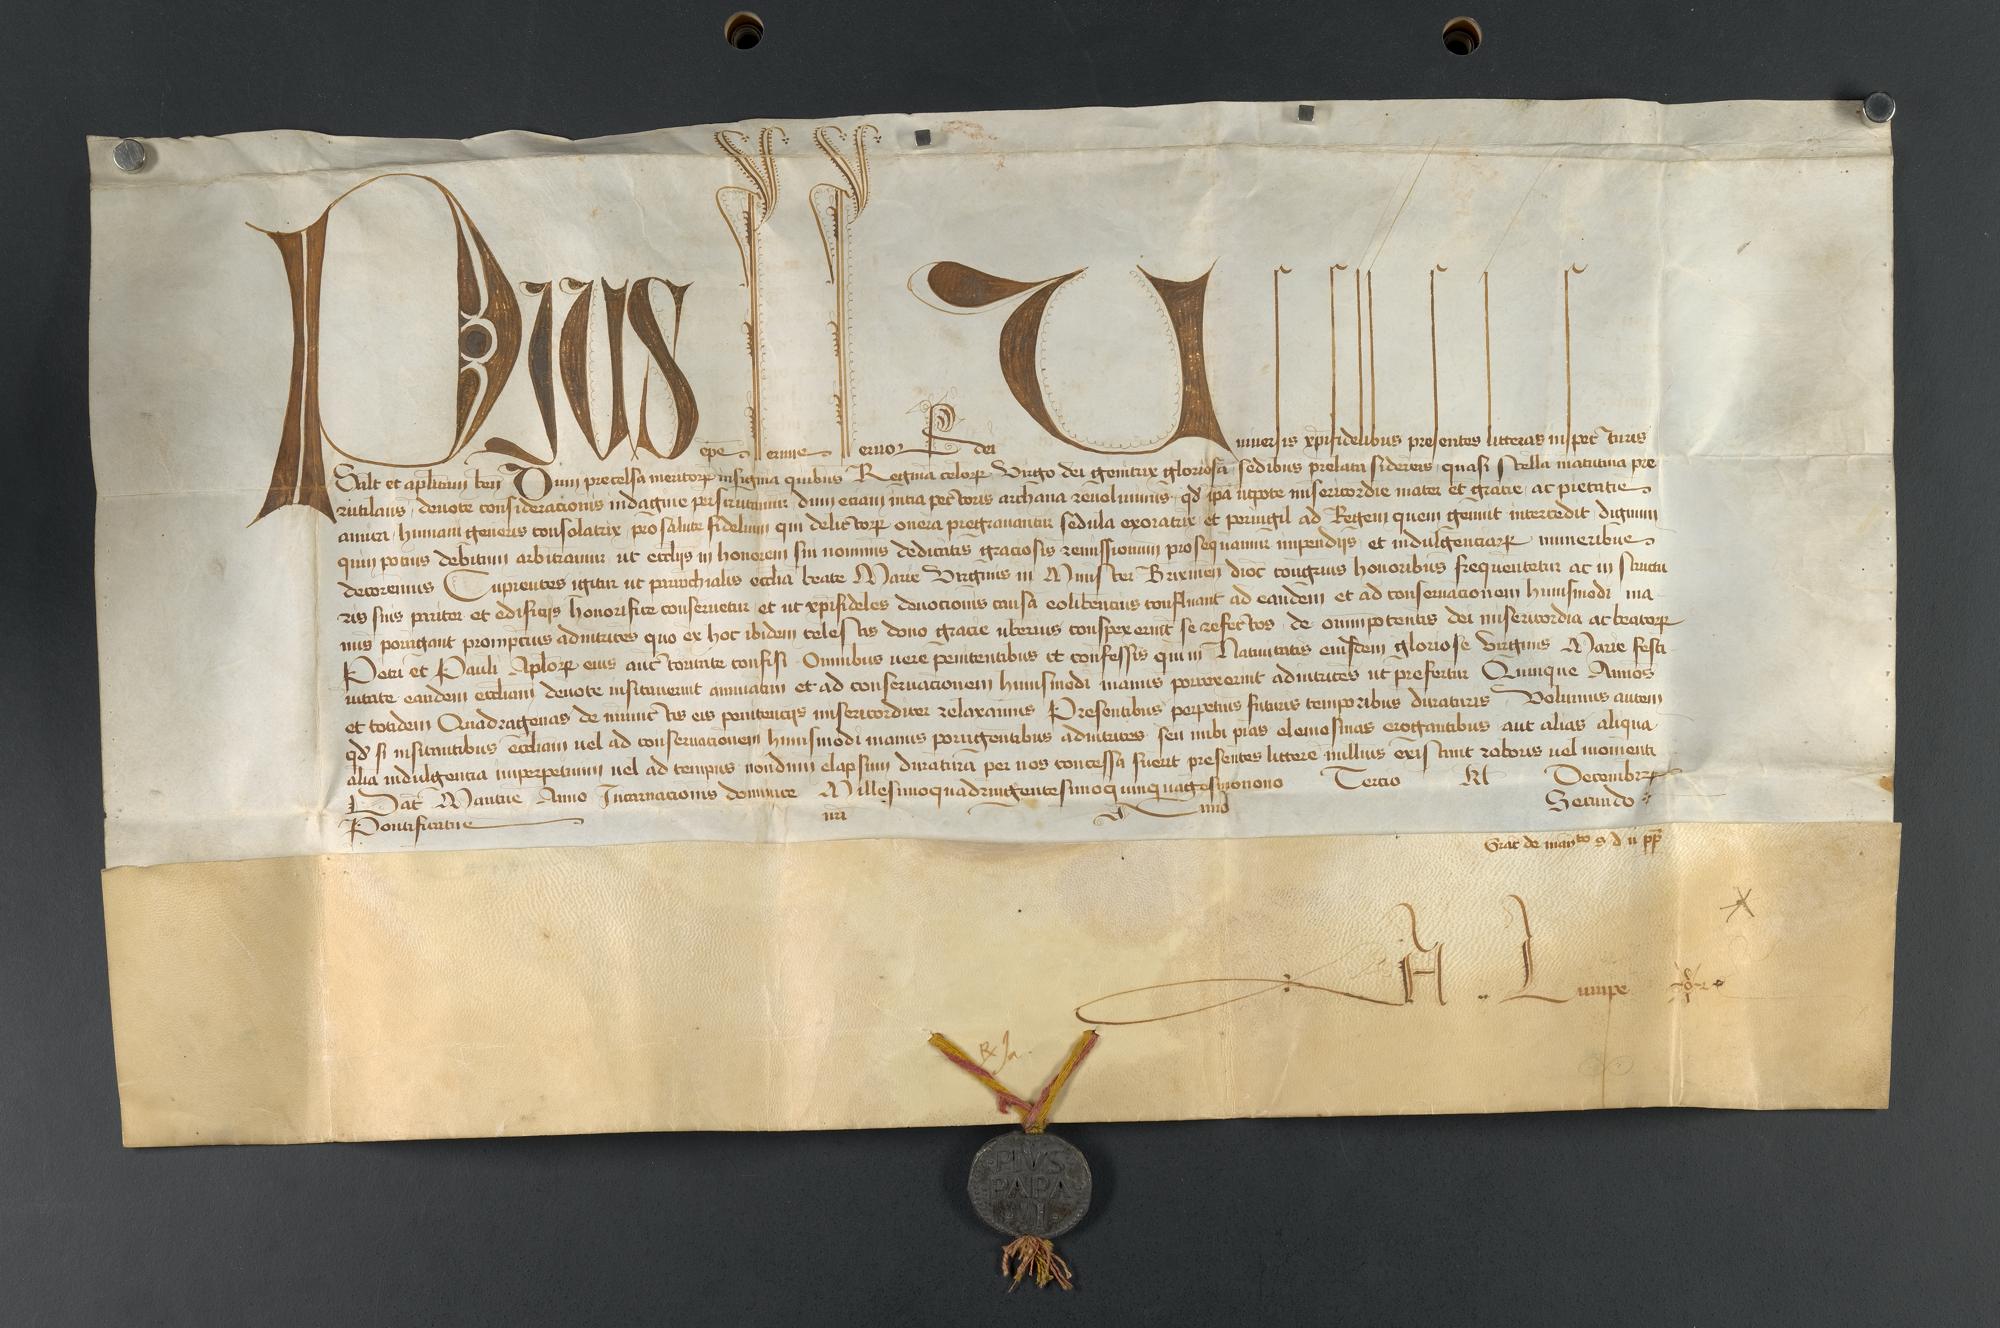 Pius epc seruus seruor dei Uniuersis xpifidelibus presentes litteras inspecturis
Salt et aplicam ben Dum precelsa meritor insignia quibus Regina celor Virgo dei genitrix gloriosa sedibus prelata sidereis quasi stella matutina pre
rutilans deuote consideracionis indagine perscrutamur dum eciam intra pectoris archana reuoluimus qd ipa utpote misericordie mater et gracie ac pietatis
amica humani generis consolatrix pro salute fidelium qui delictor onera pregrauantur sedula exoratrix et peruigil ad Regem quem genuit intercedit dignum
quin potius debitum arbitramur ut ecclijs in honorem sui nominis dedicatis graciosis remissionum prosequamur impendijs et indulgenciar muneribus
decoremus Cupientes igitur ut parrochialis ecclia beate Marie Virginis in Munster Brixinen dioc congruis honoribus frequentetur ac in structu
ris suis pariter et edificijs honorifice conseruetur et ut xpifideles deuocionis causa eo libencius confluant ad eandem et ad conseruacionem huiusmodi ma
nus porrigant promptius adiutrices quo ex hoc ibidem celestis dono gracie uberius conspexerint se refectos de omnipotentis dei misericordia ac beator
Petri et Pauli Aplor eius auctoritate confisi Omnibus uere penitentibus et confessis qui in Natiuitatis eiusdem gloriose Virginis Marie festi
uitate eandem eccliam deuote uisitauerint annuatim et ad conseruacionem huiusmodi manus porrexerint adiutrices ut prefertur Quinque Annos
et totidem Quadragenas de iniunctis eis penitencijs misericorditer relaxamus Presentibus perpetuis futuris temporibus duraturis Volumus autem
qd si uisitantibus eccliam uel ad conseruacionem huiusmodi manus porrigentibus adiutrices seu inibi pias elemosinas erogantibus aut alias aliqua
alia indulgentia imperpetuum uel ad tempus nondum elapsum duratura per nos concessa fuerit presentes littere nullius existant roboris uel momenti
Dat Mantue Anno Incarnacionis dominice Millesimoquadringentesimoquinquagesimonono Tercio kl Decembr
Pontificatus nri Anno Secundo
Grat de manto s d n pp
H. Lumpe
Rx Ja.
PIVS
PAPA
·II·